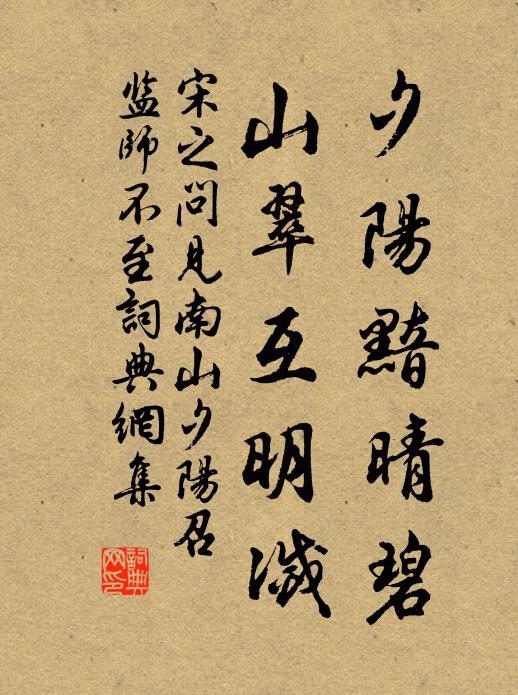 夕陽黯晴碧
山翠互明滅
宋之問見南山夕陽召
監師不至詞典網集
詞典
网印